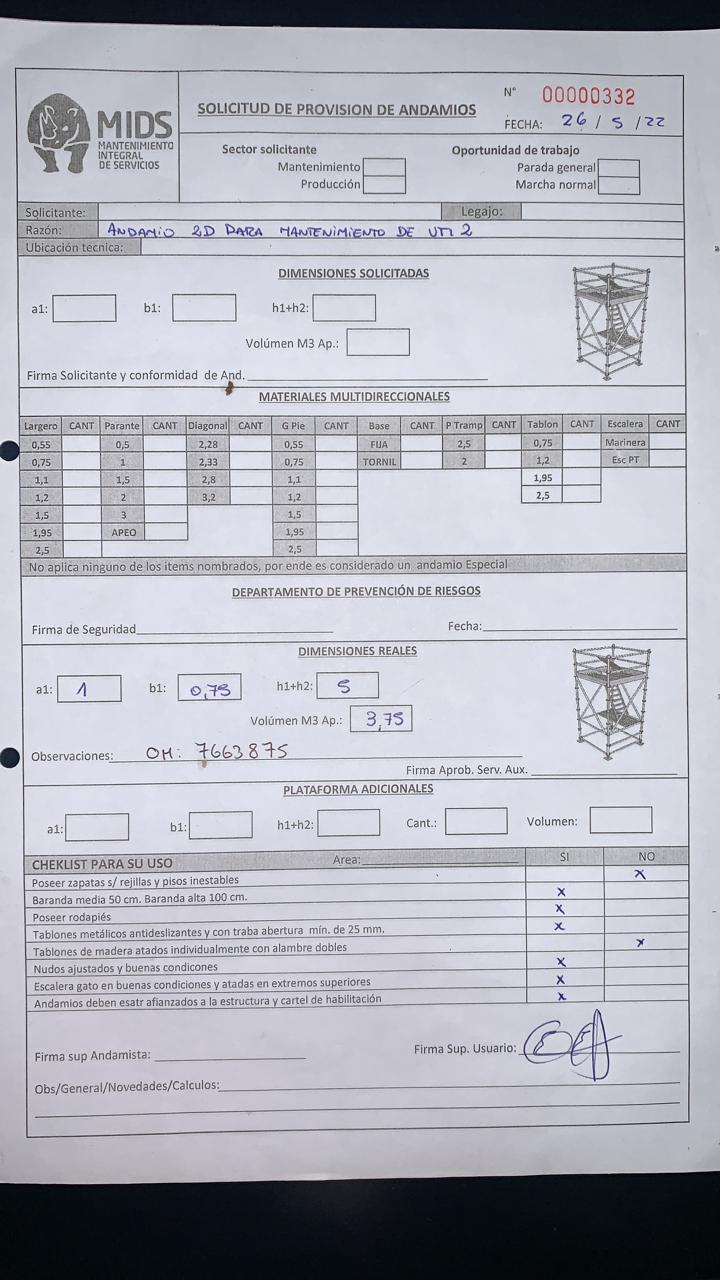 MIDS
MANTENIMIENTO
INTEGRAL
DE SERVICIOS
SOLICITUD DE PROVISION DE ANDAMIOS
N° 00000332
FECHA: 26 / 5 / 22
Sector solicitante
Mantenimiento
Producción
Oportunidad de trabajo
Parada general
Marcha normal
Solicitante: Legajo:
Razón: ANDAMIO 2D PARA MANTENIMIENTO DE UTI 2
Ubicación tecnica:
DIMENSIONES SOLICITADAS
a1: b1: h1+h2:
Volúmen M3 Ap.:
Firma Solicitante y conformidad de And.
MATERIALES MULTIDIRECCIONALES
Largero CANT Parante CANT Diagonal CANT G Pie CANT Base CANT P Tramp CANT Tablon CANT Escalera CANT
0,55 0,5 2,28 0,55 FIJA 2,5 0,75 Marinera
0,75 1 2,33 0,75 TORNIL 2 1,2 Esc PT
1,1 1,5 2,8 1,1 1,95
1,2 2 3,2 1,2 2,5
1,5 3 1,5
1,95 APEO 1,95
2,5 2,5
No aplica ninguno de los items nombrados, por ende es considerado un andamio Especial
DEPARTAMENTO DE PREVENCIÓN DE RIESGOS
Firma de Seguridad Fecha:
DIMENSIONES REALES
a1: 1 b1: 0,75 h1+h2: 5
Volúmen M3 Ap.: 3,75
Observaciones: OM: 7663875
Firma Aprob. Serv. Aux.
PLATAFORMA ADICIONALES
a1: b1: h1+h2: Cant.: Volumen:
CHEKLIST PARA SU USO Area: SI NO
Poseer zapatas s/ rejillas y pisos inestables x
Baranda media 50 cm. Baranda alta 100 cm. x
Poseer rodapiés x
Tablones metálicos antideslizantes y con traba abertura mín. de 25 mm. x
Tablones de madera atados individualmente con alambre dobles x
Nudos ajustados y buenas condicones x
Escalera gato en buenas condiciones y atadas en extremos superiores x
Andamios deben esatr afianzados a la estructura y cartel de habilitación x
Firma sup Andamista: Firma Sup. Usuario:
Obs/General/Novedades/Calculos: